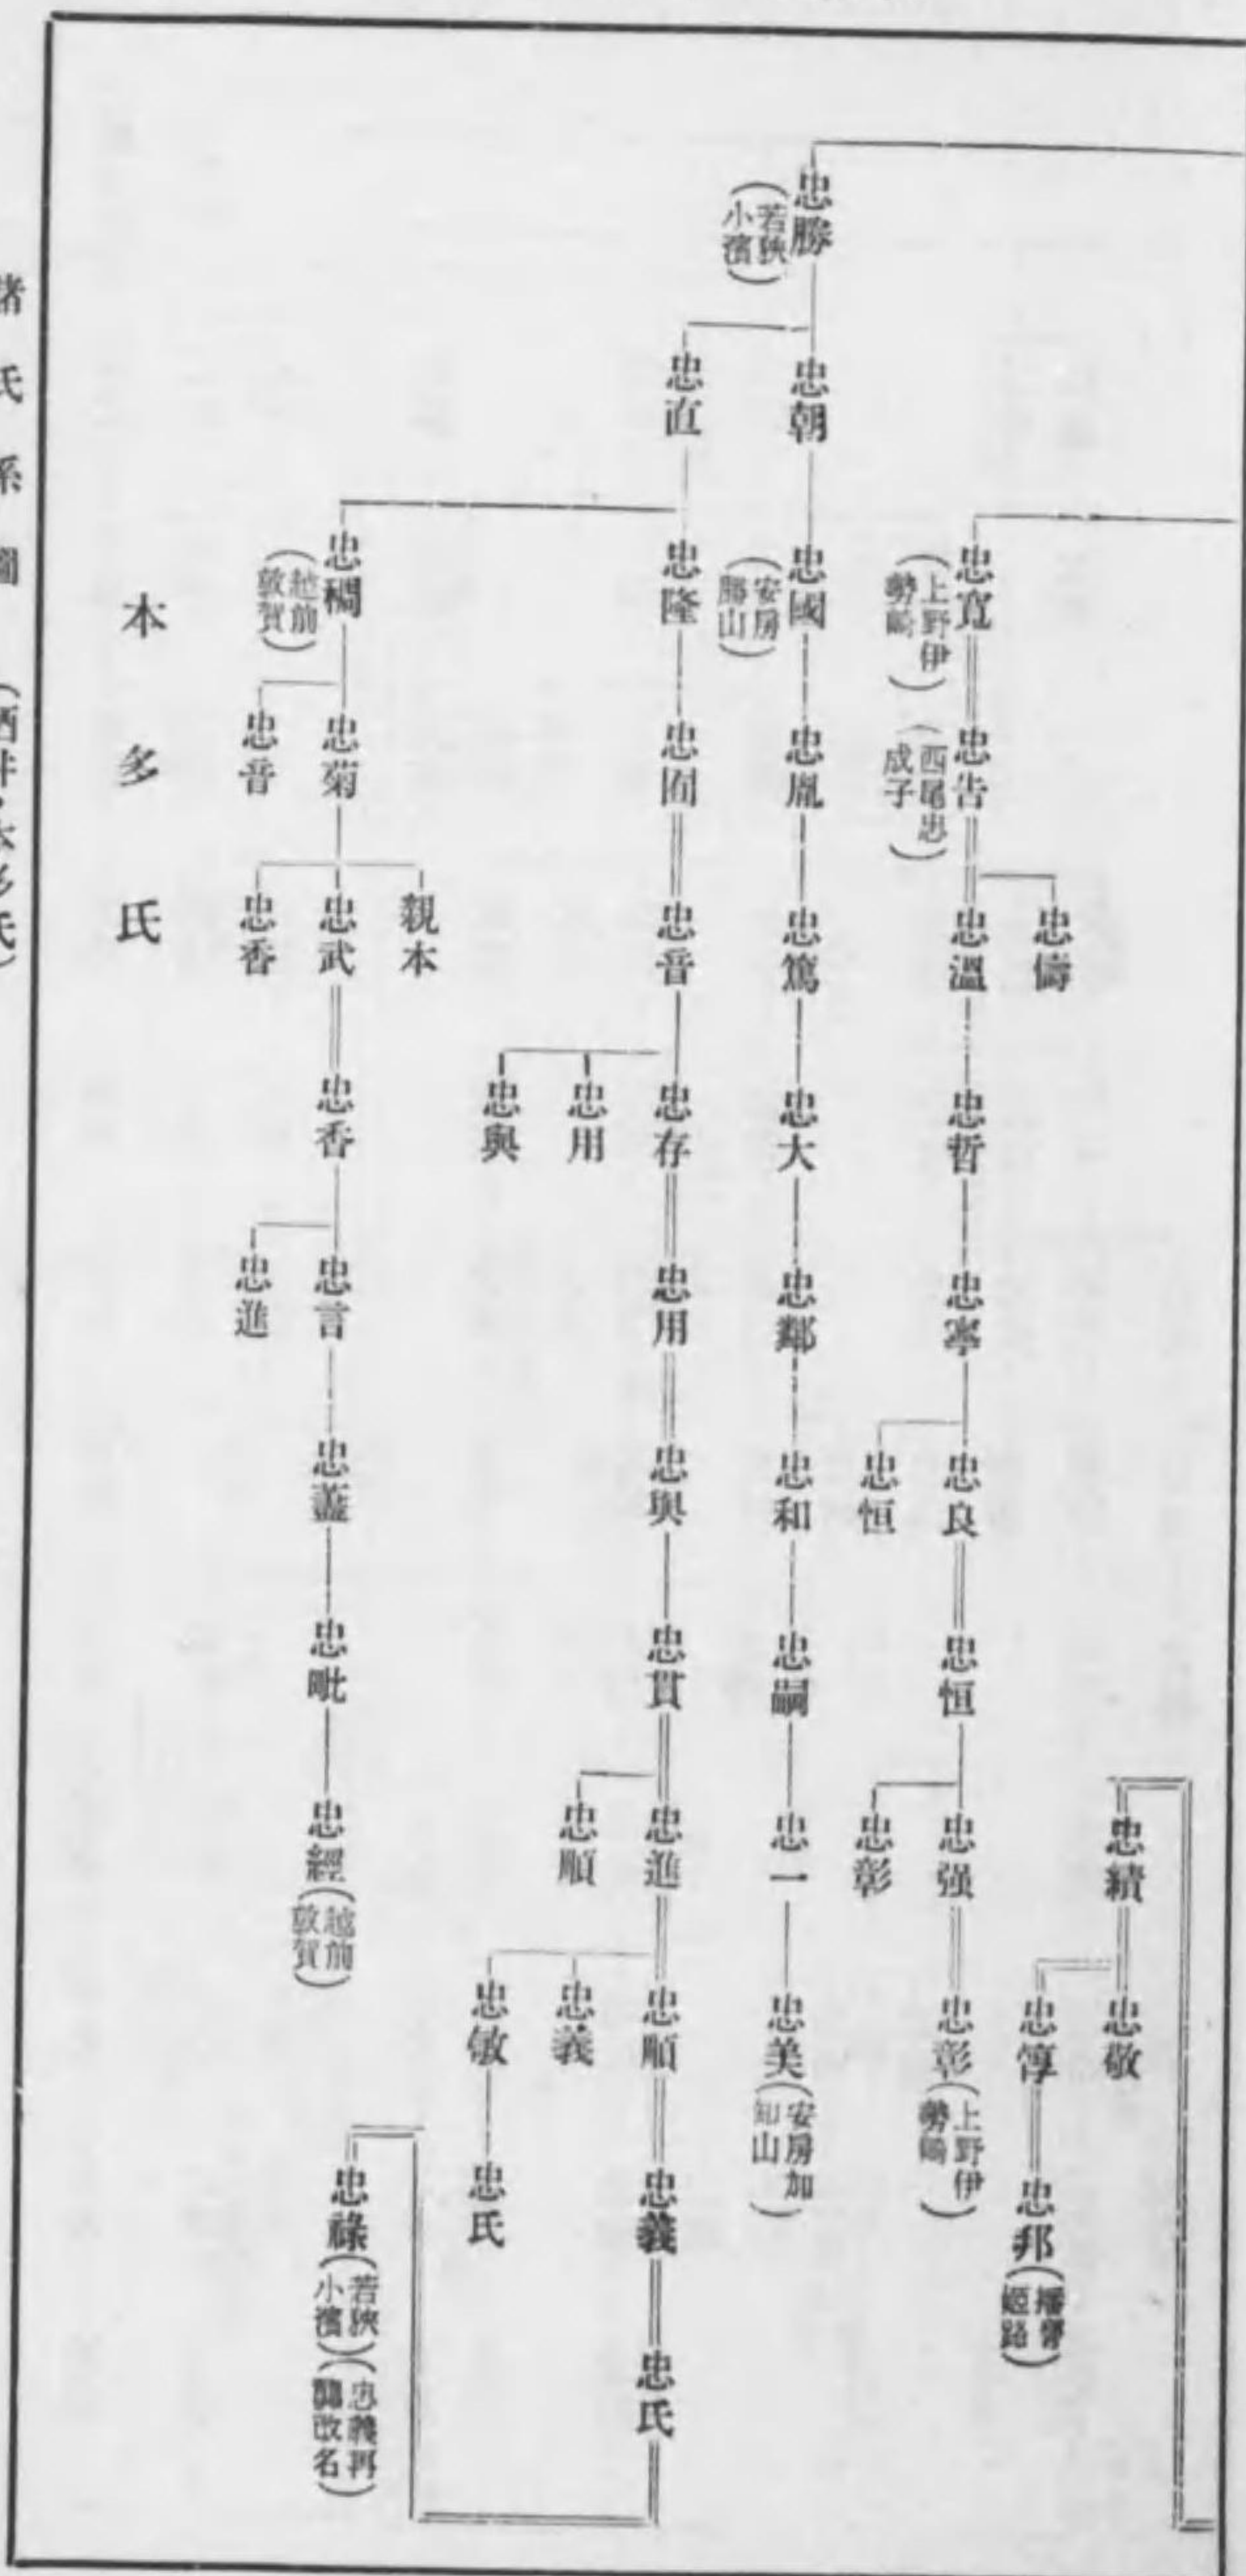 忠績 忠敬
忠惇 忠邦(播磨姫路)
忠儔
忠寬(上野伊勢崎) 忠告(西尾忠成子) 忠溫 忠哲 忠寧 忠良 忠恒 忠强 忠彰(上野伊勢崎)
忠恒 忠彰
忠勝(若狹小濱) 忠朝 忠國(安房勝山) 忠胤 忠篤 忠大 忠鄰 忠和 忠嗣 忠一 忠美(安房加知山)
忠直 忠隆 忠囿 忠音 忠存 忠用 忠與 忠貫 忠進 忠順 忠義 忠氏
忠用 忠順 忠義
忠與 忠敏 忠氏
親本
忠稠(越前敦賀) 忠菊 忠武 忠香 忠言 忠藎 忠毗 忠經(越前敦賀)
忠祿(若狹小濱)(忠義再襲改名)
忠音 忠香 忠進
本多氏
諸氏系圖 (酒井・本多氏)